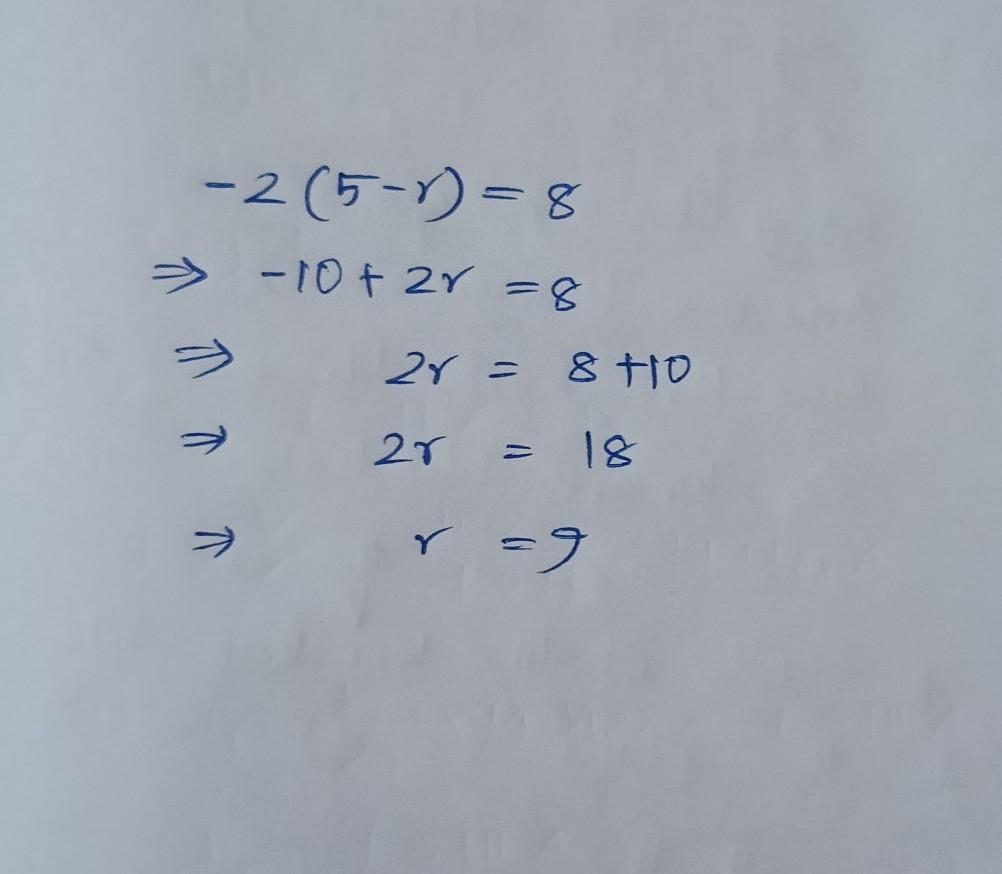 -2(5-r) = 8
⇒ -10 + 2r = 8
⇒ 2r = 8 +10
⇒ 2r = 18
⇒ r = 9